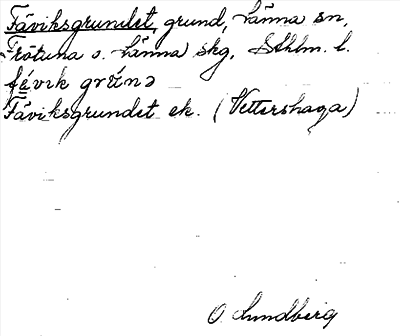 Fåviksgrundet, grund, Länna sn,
Fröttuna o. Länna skg, Sthlm. l.
févik grưnə
Fåviksgrundet ek. (Vettershaga)
O. Lundberg